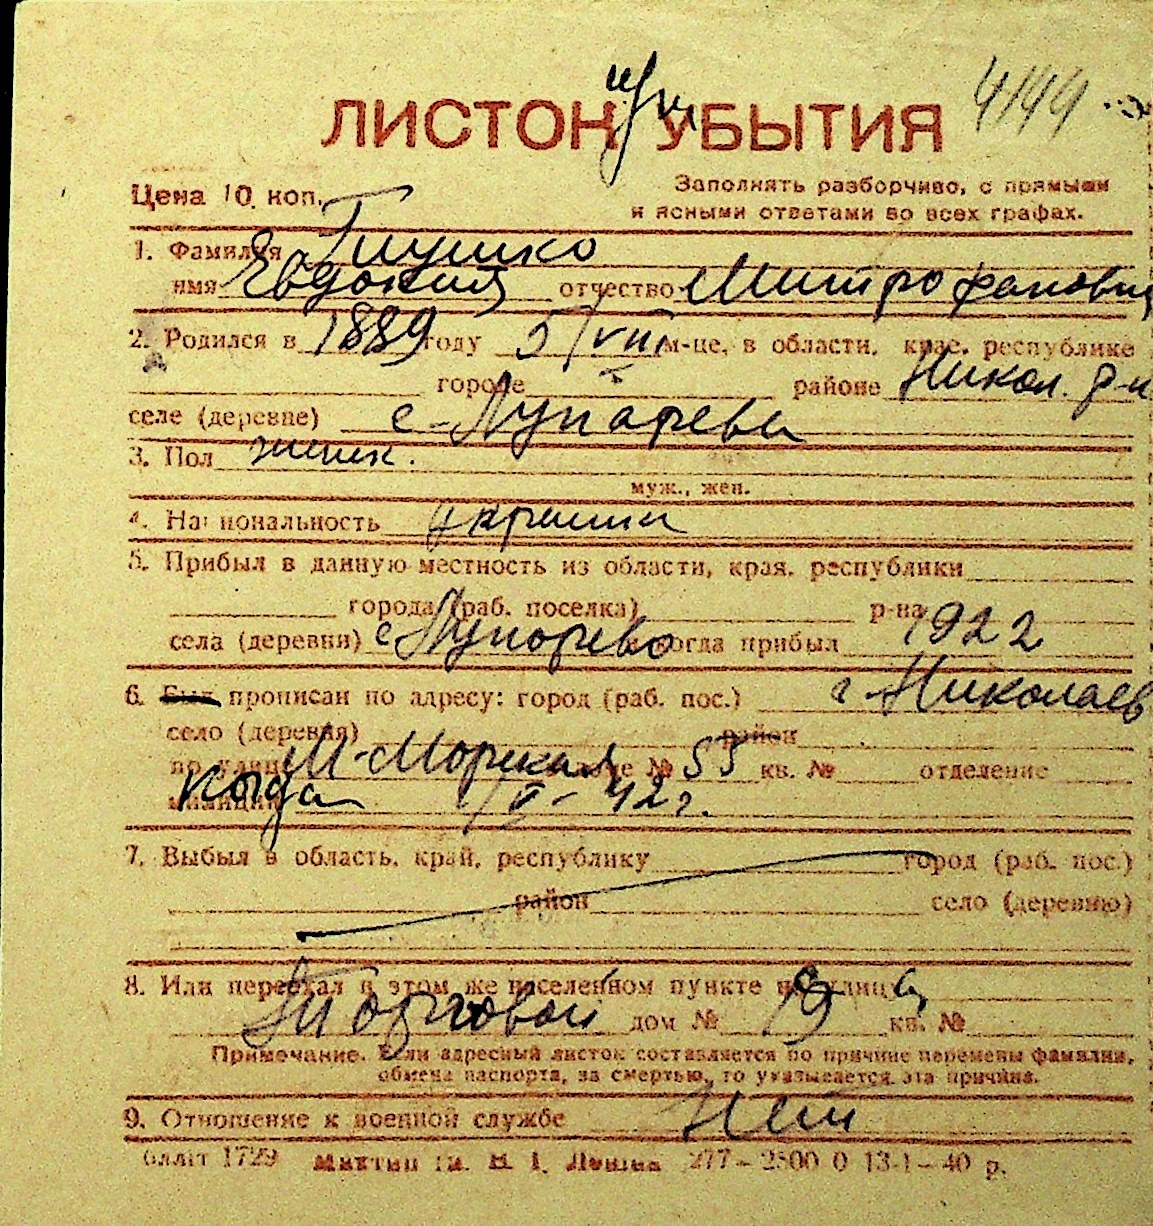 4144
ЛИСТОК УБЫТИЯ
Цена 10 коп.
Заполнять разборчиво, с прямыми
и ясными ответами во всех графах.
1. Фамилия Глушко
имя Евдокия отчество Митрофановна
2. Родился в 1889 году 5/VIII м-це, в области, крае, республике
городе районе Никол. р-н
селе (деревне) с. Лупарева
3. Пол женск.
муж., жен.
4. Национальность Украинка
5. Прибыл в данную местность из области, края, республики
города (раб. поселка) р-на
села (деревни) с. Лупарево и когда прибыл 1922
6. Был прописан по адресу: город (раб. пос.) г. Николаев
село (деревня) район
по улице М-Морская доме № 55 кв. № отделение
милиции Когда 1/V-42 г.
7. Выбыл в область, край, республику город (раб. пос.)
район село (деревню)
8. Или переехал в этом же населенном пункте на улицу
Торговой дом № 19 кв. №
Примечание. Если адресный листок составляется по причине перемены фамилии,
обмена паспорта, за смертью, то указывается эта причина.
9. Отношение к военной службе Нет
1729 277—2500 0 13-1—40 р.